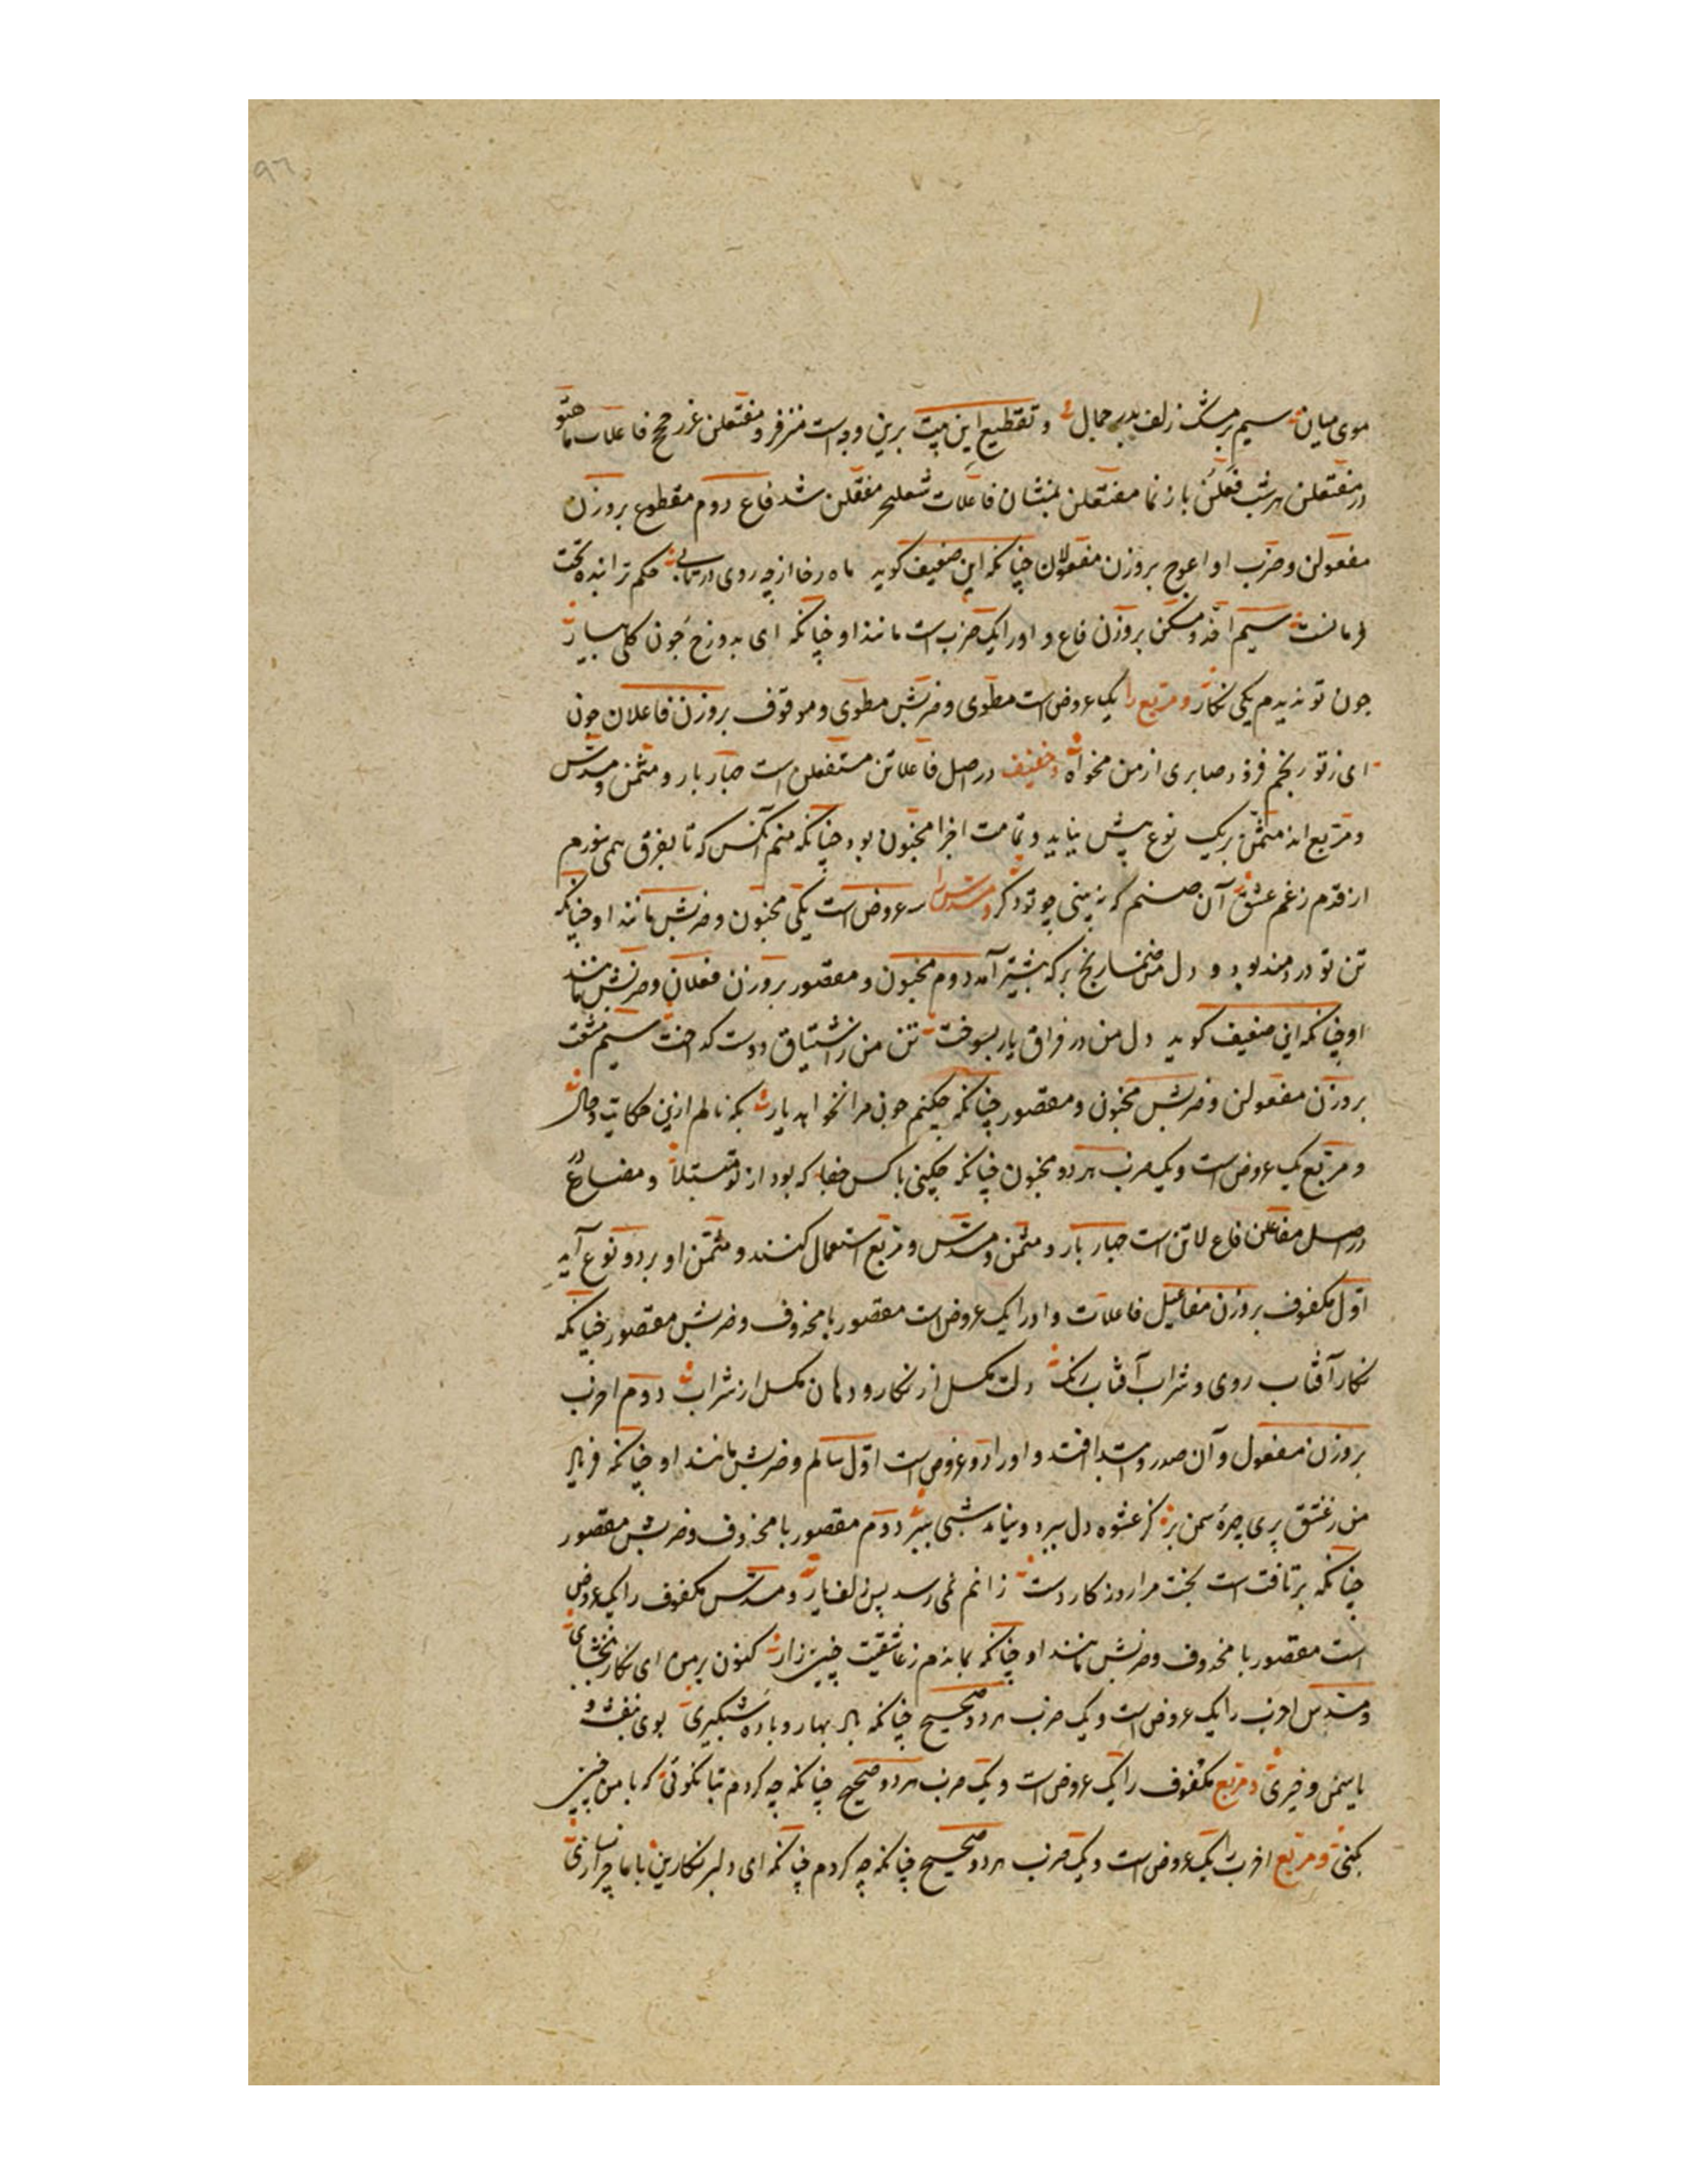 ۹٦
موی میان سیم بر مشک زلف بدر جمال و تقطیع این بیت برین وجه است مفتعلن فاعلات
در مفتعلن هرشب فعلن باز نما مفتعلن فاعلات مفتعلن شد فاع دوم مقطوع بروزن
مفعولن و ضرب او اعرج بروزن مفعولان چنانکه این ضعیف کوید ماه رخا از چه روی در تابی حکم ترا بنده تحت
فرمانست سیم بروزن فاع و او را یک ضرب است مانند او چنانکه ای بدو رخ چون کل بهار
چون تو ندیدم یکی نکار و مربع را یک عروض است مطوی و ضربش مطوی و موقوف بروزن فاعلان چون
ای ز تو رنجم فزود صابری از من مخواه و خفیف در اصل فاعلاتن مستفعلن است چهار بار و مثمن و مسدس
و مربع اند مثمن بریک نوع بیش نیاید و تمامت اجزا مخبون بود چنانکه منم آنکس که تا بفرق همی
از قدم ز غم عشق آن صنم که نه بینی چو تو دکر و مسدس را سه عروض است یکی مخبون و ضربش مانند او چنانکه
تن تو دردمند بود و دل من آمد دوم مخبون و مقصور بروزن فعلان و ضربش مانند
او چنانکه این ضعیف کوید دل من در فراق یار بسوخت تن من ز اشتیاق دوست کداخت سیم مشعث
بروزن مفعولن و ضربش مخبون و مقصور چنانکه چکنم چون مرا نخواهد یار بکه نالم ازین حکایت و حال
و مربع یک عروض است و یک ضرب هر دو مخبون چنانکه چکنی با کس جفا که بود از تو مبتلا و مضارع
در اصل مفاعیلن فاع لاتن است چهار بار و مثمن و مسدس و مربع استعمال کنند و مثمن او بر دو نوع آید
اول مکفوف بروزن مفاعیل فاعلات و او را یک عروض است مقصور یا محذوف و ضربش مقصور چنانکه
نکار آفتاب روی و شراب آفتاب رنک دلت مکسل از نکار و دهان مکسل از شراب دوم اخرب
بروزن مفعول و آن صدر و ابتدا افتد و او را دو عروض است اول سالم و ضربش مانند او چنانکه فریاد
من ز عشق پری چهره سمن بر کز عشوه دل ببرد و نیامد شبی ببر دوم مقصور یا محذوف و ضربش مقصور
چنانکه برتافت است بخت مرا روزکار دست زانم نمی رسد بسر زلف یار و مسدس مکفوف را یک عروض
است مقصور یا محذوف و ضربش مانند او چنانکه بماندم ز عاشقیت چنین زار کنون بر من ای نکار ببخشای
و مسدس اخرب را یک عروض است و یک ضرب هر دو صحیح چنانکه باد بهار و باده شبکیری بوی بنفشه و
یاسمن و خیری و مربع مکفوف را یک عروض است و یک ضرب هر دو صحیح چنانکه چه کردم بتا نکوئی که با من چنین
بکنی و مربع اخرب را یک عروض است و یک ضرب هر دو صحیح چنانکه چه کردم چنانکه ای دلبر نکارین با ما چرا نسازی